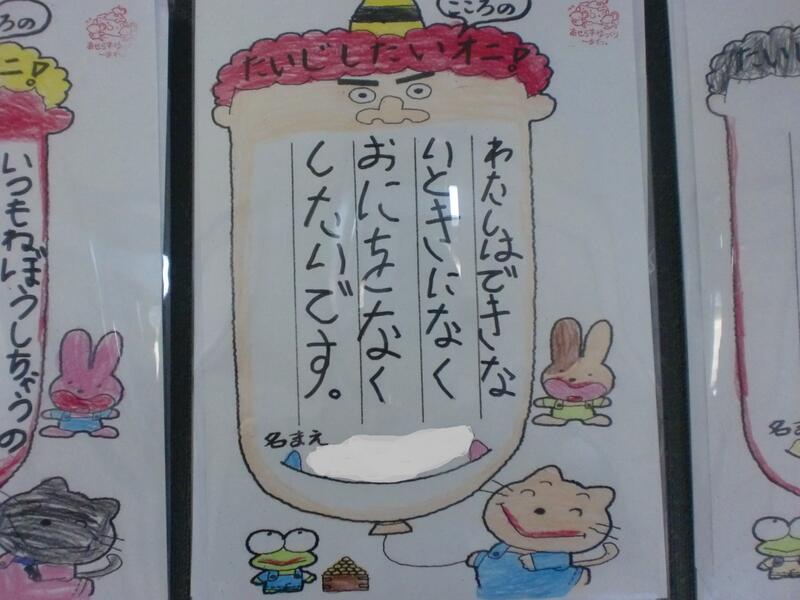 ろの
ニ!
いつもねぼうしちゃうの
こころの
たいじしたいオニ!
わたしはできな
いときになく
おにをなく
したいです。
名まえ
あせらずゆっくり
たいじ
名